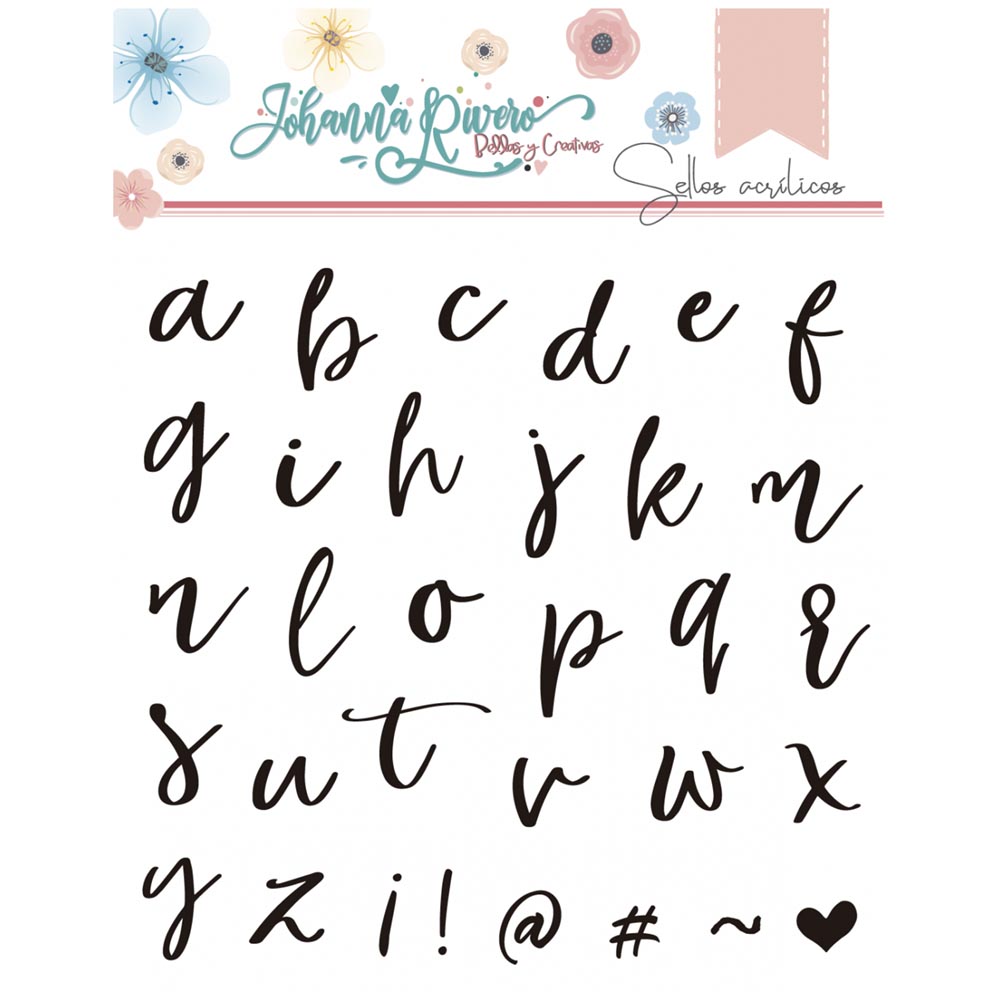 Johanna Rivero
Bellas y Creativas
Sellos acrílicos
a b c d e f
g i h j k m
n l o p q r
s u t v w x
y z ¡ ! @ # ~ ♥